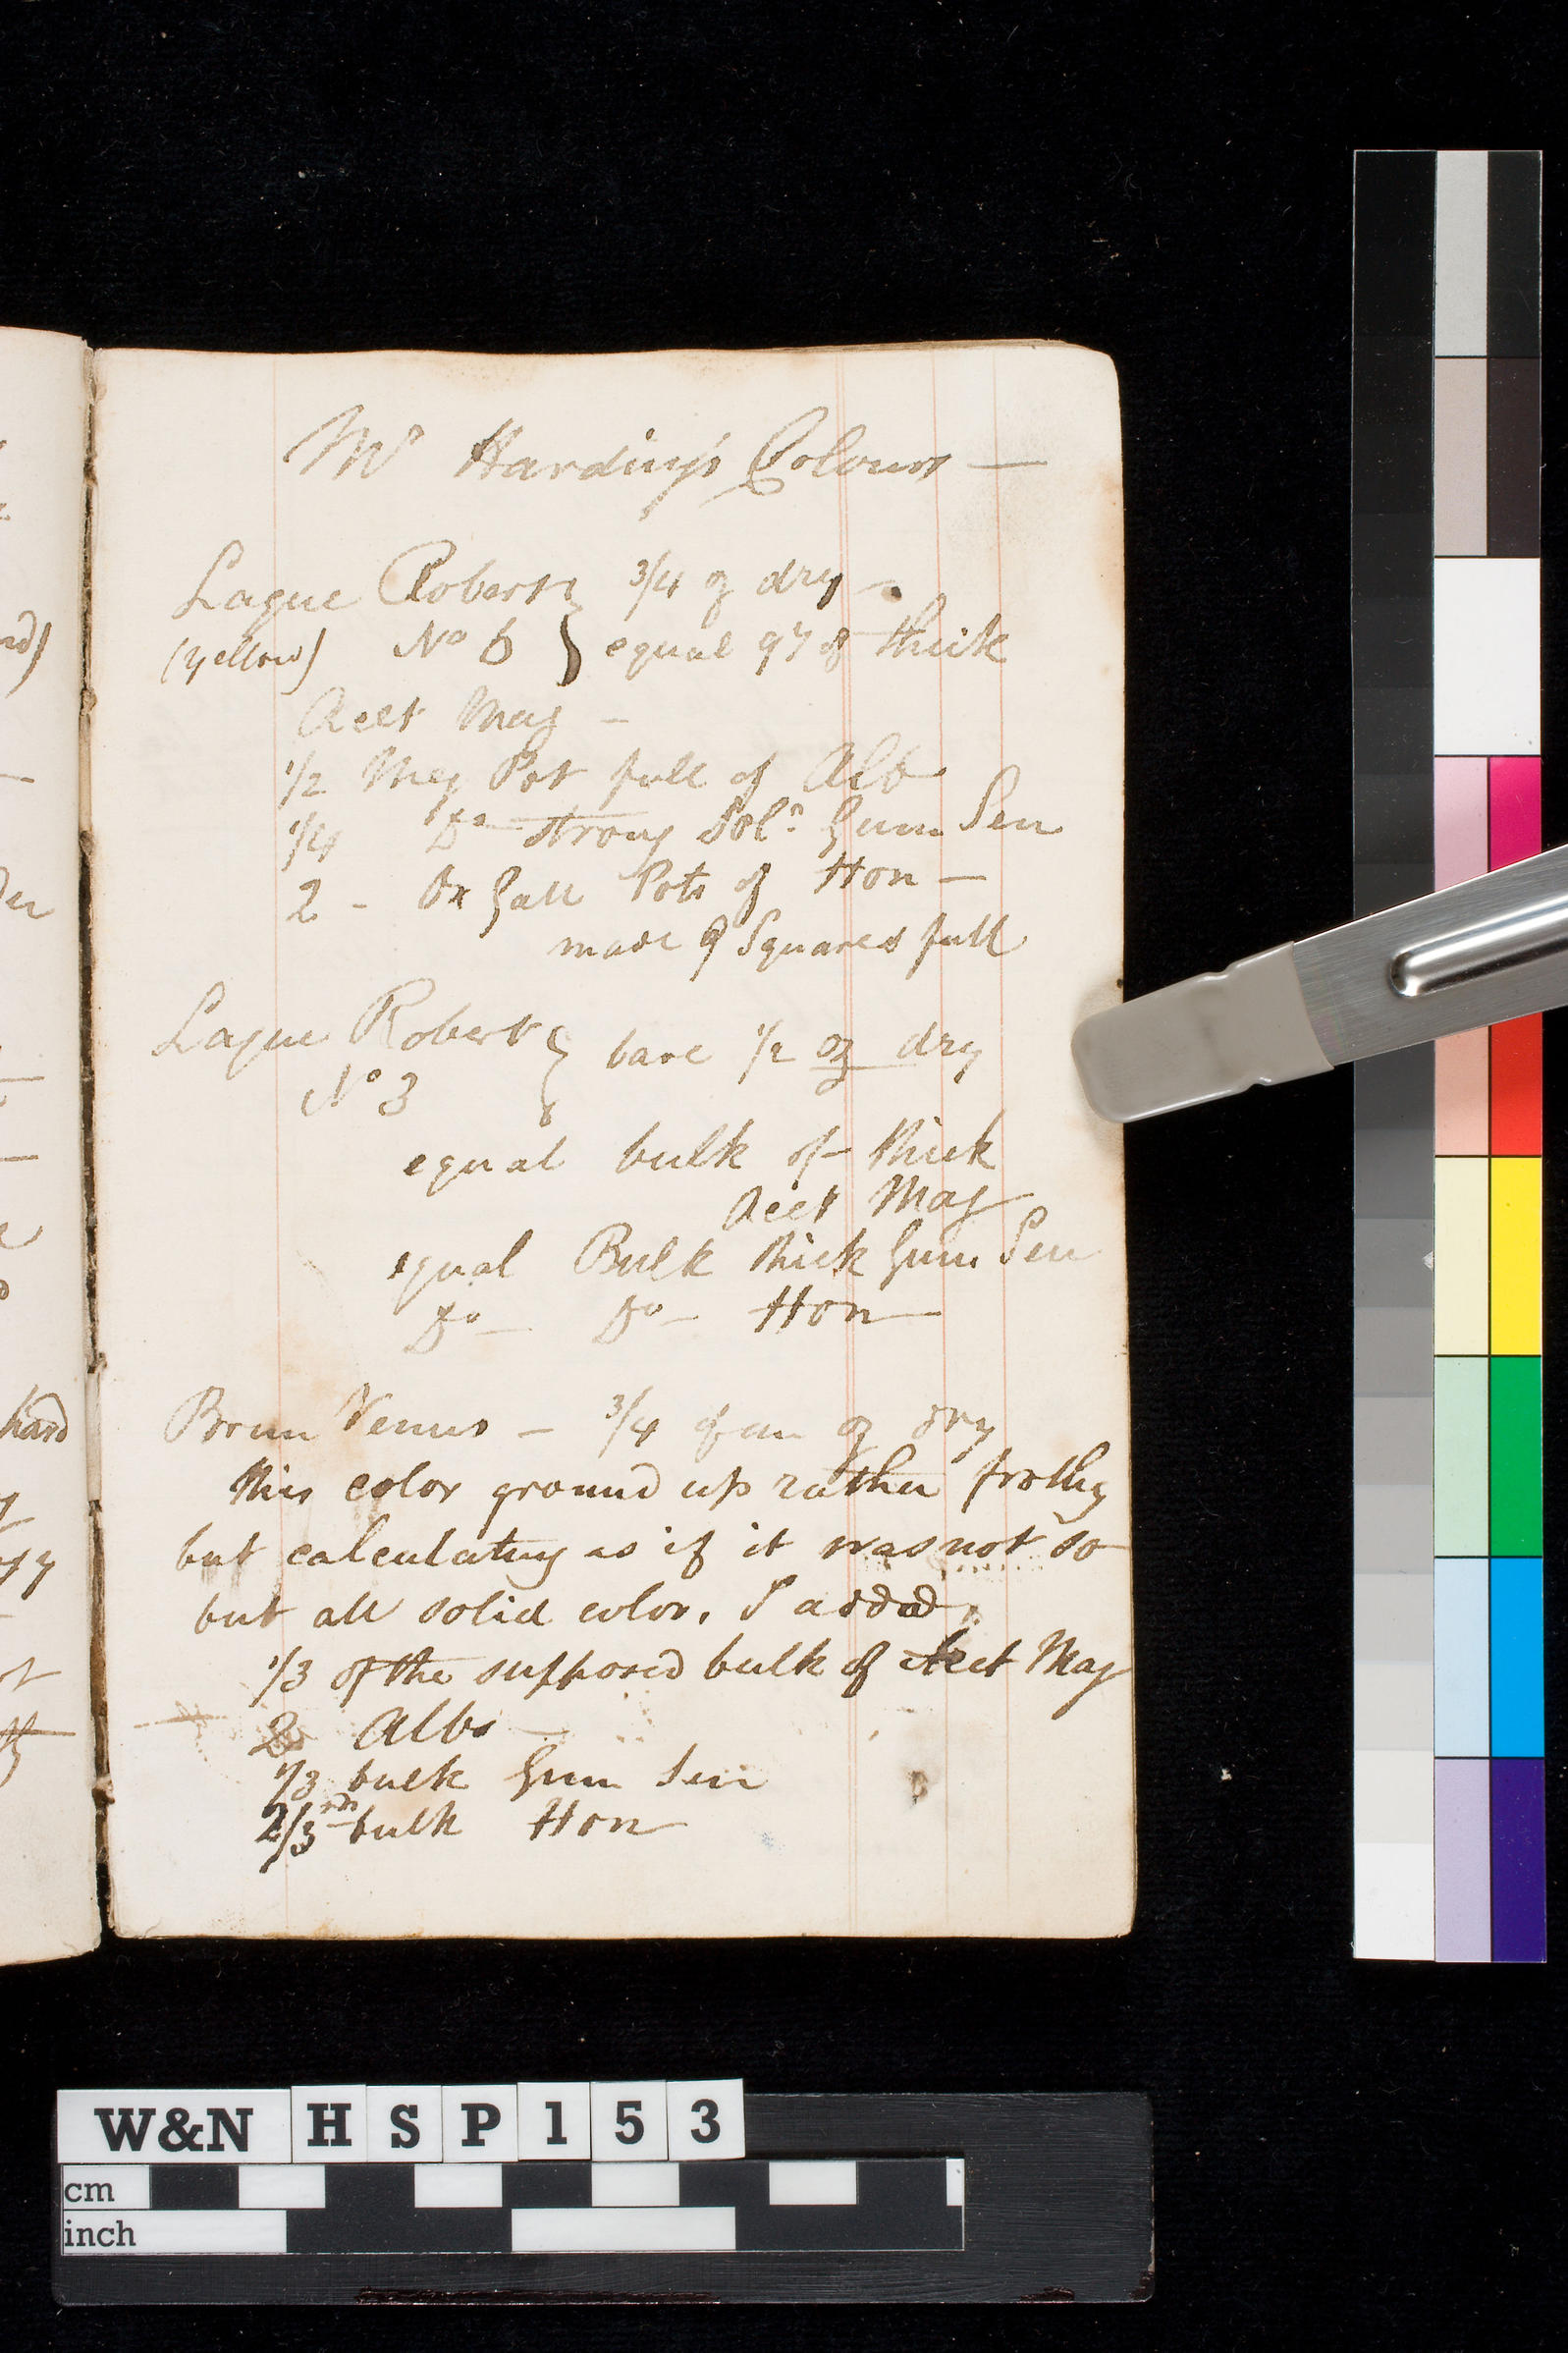 Mr Harding's Colours —
Laque Robert 3/4 oz dry —
(yellow) No 6 } equal qy of thick
Acet Mag —
1/2 Meg Pot full of Alb
1/4 Do strong Soln Gum Sen
2 - Ox Gall Pots of Hon —
made 9 Squares full
Laque Robert } bare 1/2 oz dry
No 3
equal bulk of thick
Acet Mag
equal Bulk thick Gum Sen
Do — Do — Hon —
Brun Venus — 3/4 of an oz dry
this color ground up rather frothy
but calculating as if it was not so
but all solid color. I added,
1/3 of the supposed bulk of Acet Mag
2 Albs —
1/3 bulk Gum Sen
2/3rds bulk Hon
hard
W&N HSP153
cm
inch